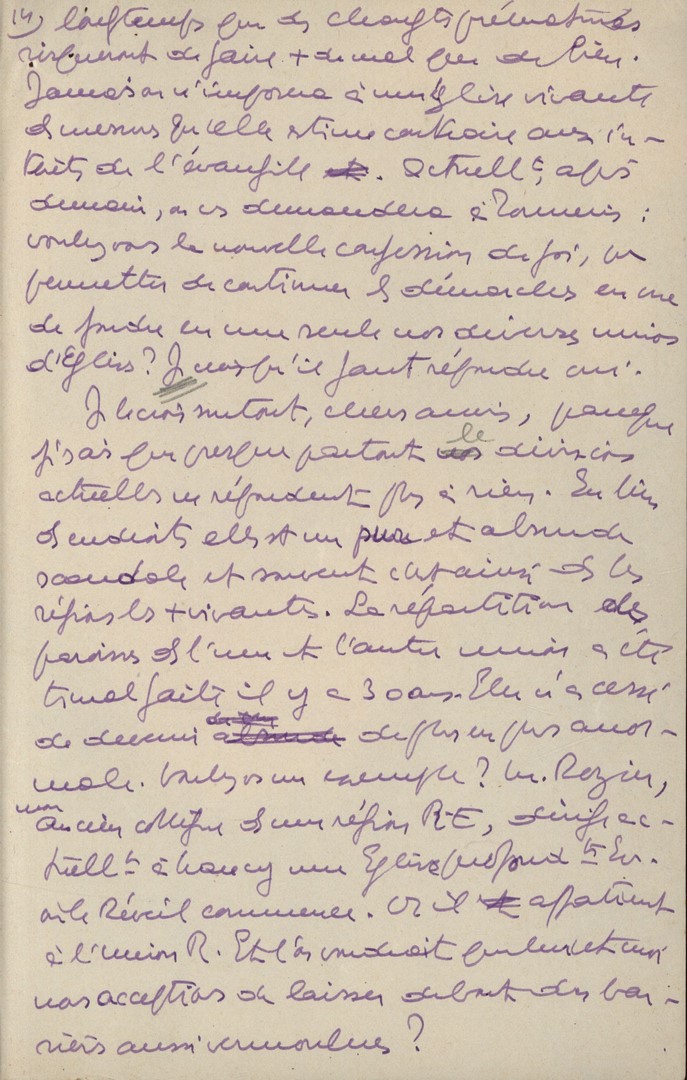 14) longtemps que des changts prématurés
risqueront de faire + de mal que de bien.
Jamais on n'imposera à une Eglise vivante
des mesures qu'elle estime contraire aux in-
térêts de l'évangile. Actuellt, après
demain, on vs demandera à Tonneins :
voulez vous la nouvelle confession de foi, ou
permettre de continuer les démarches en vue
de fondre en une seule nos diverses unions
d'Eglises? Je crois qu'il faut répondre oui.
Je le crois surtout, chers amis, parceque
je sais que presque partout les divisions
actuelles ne répondent plus à rien. En bien
des endroits elles st un pur et absurde
scandale et souvent c'est ainsi ds les
régions les + vivantes. La répartition des
paroisses ds l'une et l'autre union a été
très mal faite il y a 30 ans. Elle n'a cessé
de devenir de plus en plus anor-
male. Voulez vs un exemple? M. Rozier,
mon ancien collègue ds une région R-E, dirige ac-
tuellt à Nancy une Eglise profondt Ev.
où le Réveil commence. Or il appartient
à l'union R. Et l'on voudrait que lui et moi
nous acceptions de laisser debout des bar-
rières aussi vermoulues?